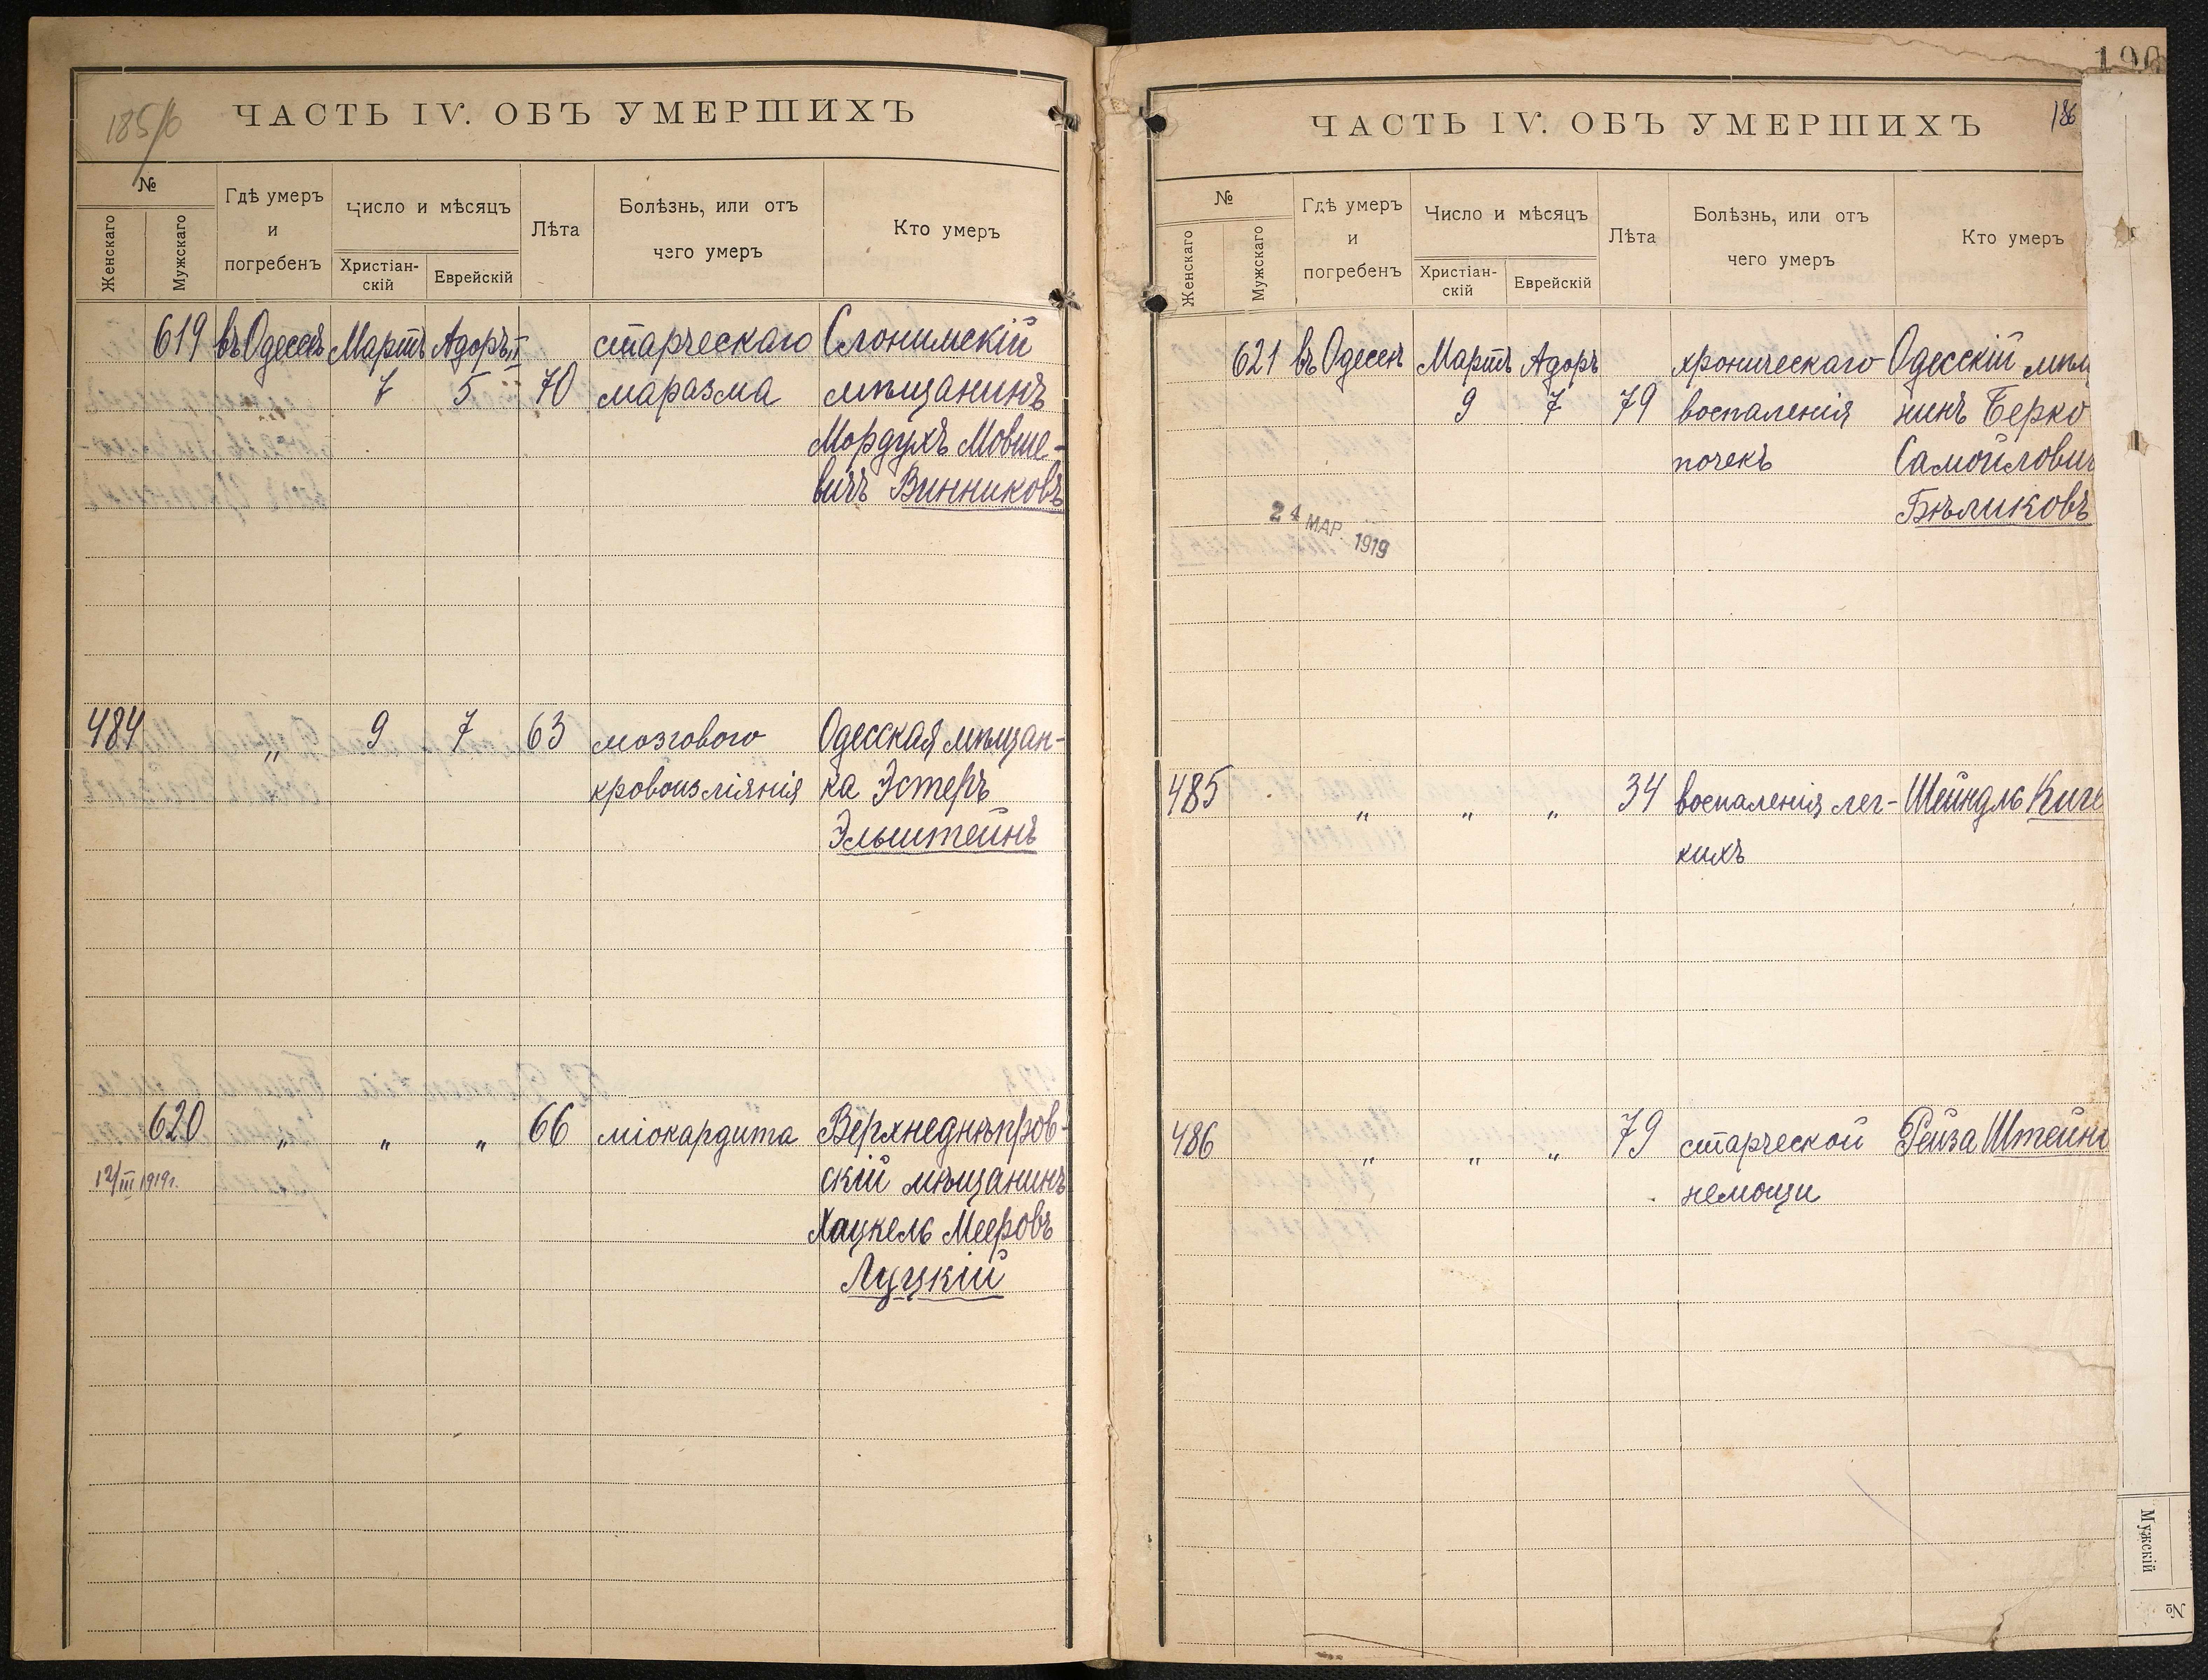 185/6
ЧАСТЬ IV. ОБЪ УМЕРШИХЪ
№
Женскаго
Мужскаго
Гдѣ умеръ
и
погребенъ
Число и мѣсяцъ
Христіан-
скій
Еврейскій
Лѣта
Болѣзнь, или отъ
чего умеръ
Кто умеръ
619 въ Одессѣ Мартъ Адоръ II старческаго Слонимскій
7 5 70 маразма мѣщанинъ
Мордухъ Мовше-
вичъ Винниковъ
484 „ 9 7 63 мозгового Одесская мѣщан-
кровоизліянія ка Эстеръ
Эльштейнъ
620 „ „ „ 66 міокардита Верхнеднѣпров-
12/III 1919г. скій мѣщанинъ
Хацкель Мееровъ
Луцкій
190
ЧАСТЬ IV. ОБЪ УМЕРШИХЪ
186
№
Женскаго
Мужскаго
Гдѣ умеръ
и
погребенъ
Число и мѣсяцъ
Христіан-
скій
Еврейскій
Лѣта
Болѣзнь, или отъ
чего умеръ
Кто умеръ
621 въ Одессѣ Мартъ Адоръ хроническаго Одесскій мѣщ
9 7 79 воспаленія нинъ Берко
почекъ Самойлович
Бѣликовъ
24 МАР. 1919
485 „ „ „ 34 воспаленія лег- Шейндль
кихъ
486 „ „ „ 79 старческой Рейза Штейнг
немощи
Мужскій
№